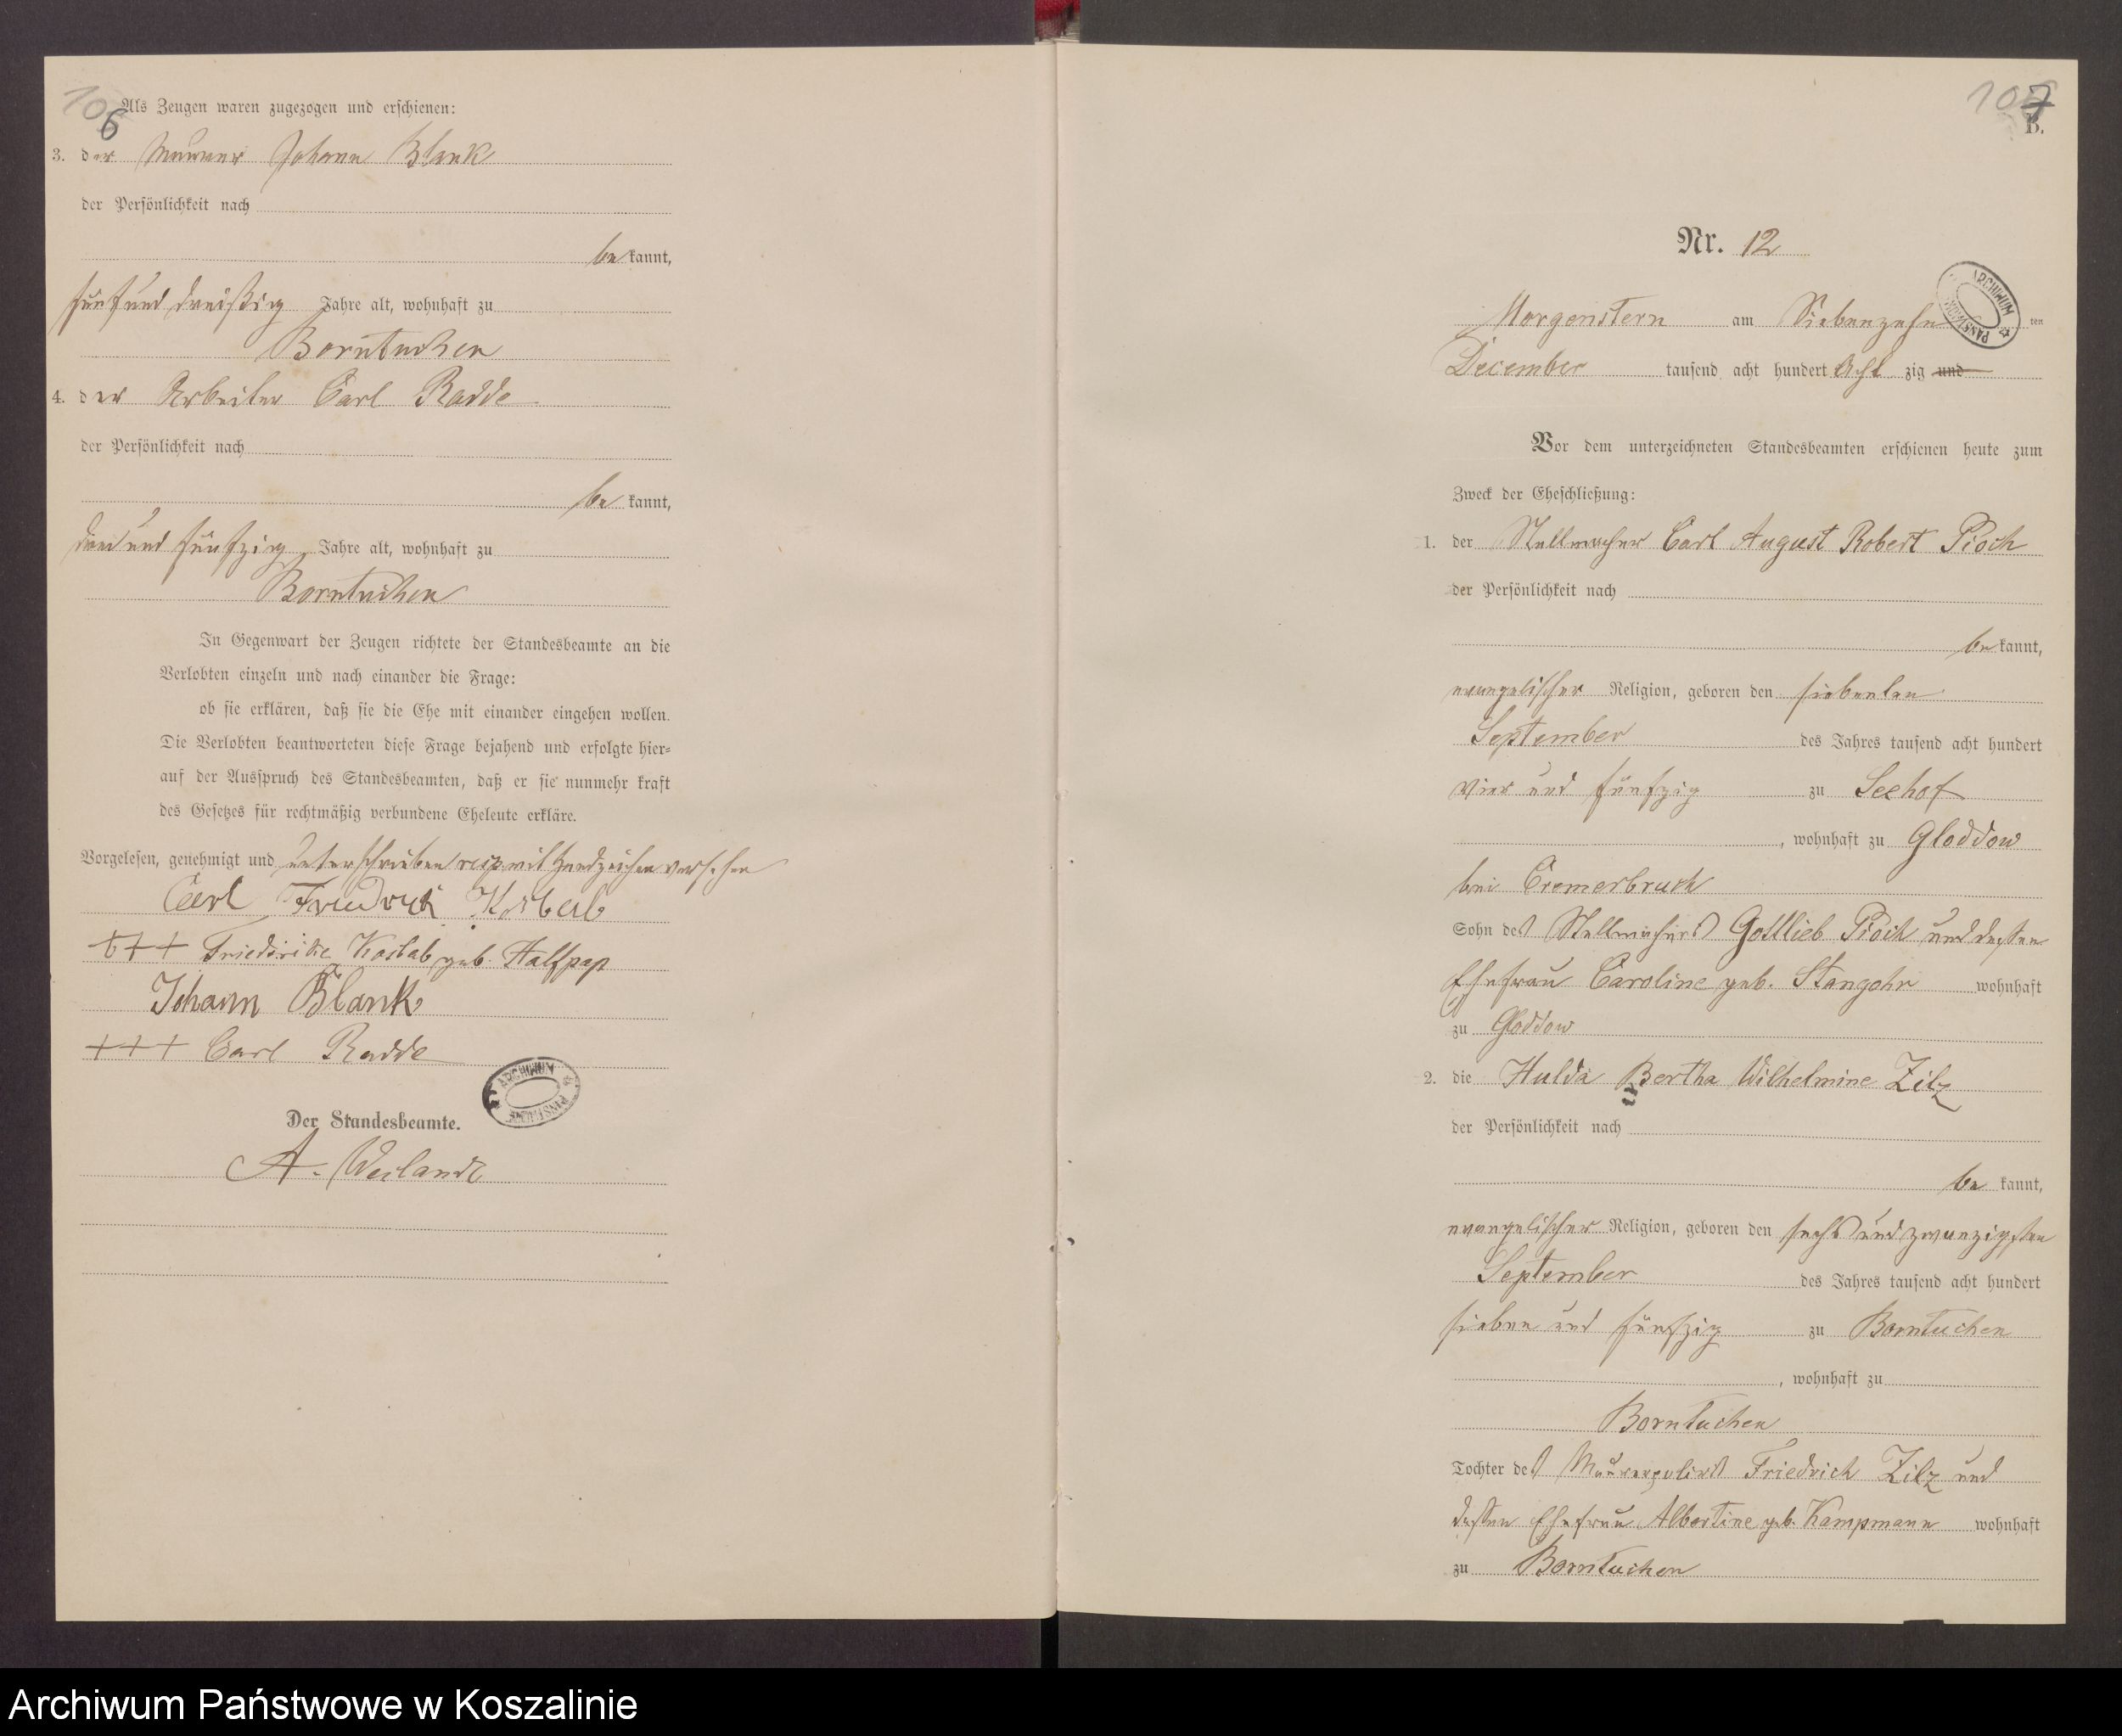 106
Als Zeugen waren zugezogen und erschienen:
3. der Maurer Johann Blank
der Persönlichkeit nach
bekannt,
fünf und dreißig Jahre alt, wohnhaft zu
Borntuchen
4. der Arbeiter Carl Radde
der Persönlichkeit nach
be kannt,
drei und fünfzig Jahre alt, wohnhaft zu
Borntuchen
In Gegenwart der Zeugen richtete der Standesbeamte an die
Verlobten einzeln und nach einander die Frage:
ob sie erklären, daß sie die Ehe mit einander eingehen wollen.
Die Verlobten beantworteten diese Frage bejahend und erfolgte hier=
auf der Ausspruch des Standesbeamten, daß er sie nunmehr kraft
des Gesetzes für rechtmäßig verbundene Eheleute erkläre.
Vorgelesen, genehmigt und unterschrieben resp mit Handzeichen versehen
Carl Friedrich
+++ Friedricke Koslab geb. Halfpap
Johann Blank
+++ Carl Radde
ARCHIWUM PAŃSTWOWE
Der Standesbeamte.
A. Weilandt
107
B.
Nr. 12
ARCHIWUM PAŃSTWOWE
Morgenstern am Siebenzehn ten
December tausend acht hundert Acht zig und
Vor dem unterzeichneten Standesbeamten erschienen heute zum
Zweck der Eheschließung:
1. der Stellmacher Carl August Robert Pioch
der Persönlichkeit nach
bekannt,
evangelischer Religion, geboren den siebenten
September des Jahres tausend acht hundert
vier und fünfzig zu Seehof
, wohnhaft zu Gloddow
bei Cremerbruch
Sohn des Stellmachers Gottlieb Pioch und dessen
Ehefrau Caroline geb. Stangohr wohnhaft
zu Gloddow
2. die Hulda Bertha Wilhelmine Zilz
der Persönlichkeit nach
be kannt,
evangelischer Religion, geboren den sechs und zwanzigsten
September des Jahres tausend acht hundert
sieben und fünfzig zu Borntuchen
, wohnhaft zu
Borntuchen
Tochter des Maurerpoliers Friedrich Zilz und
dessen Ehefrau Albertine geb. Kampmann wohnhaft
zu Borntuchen
Archiwum Państwowe w Koszalinie